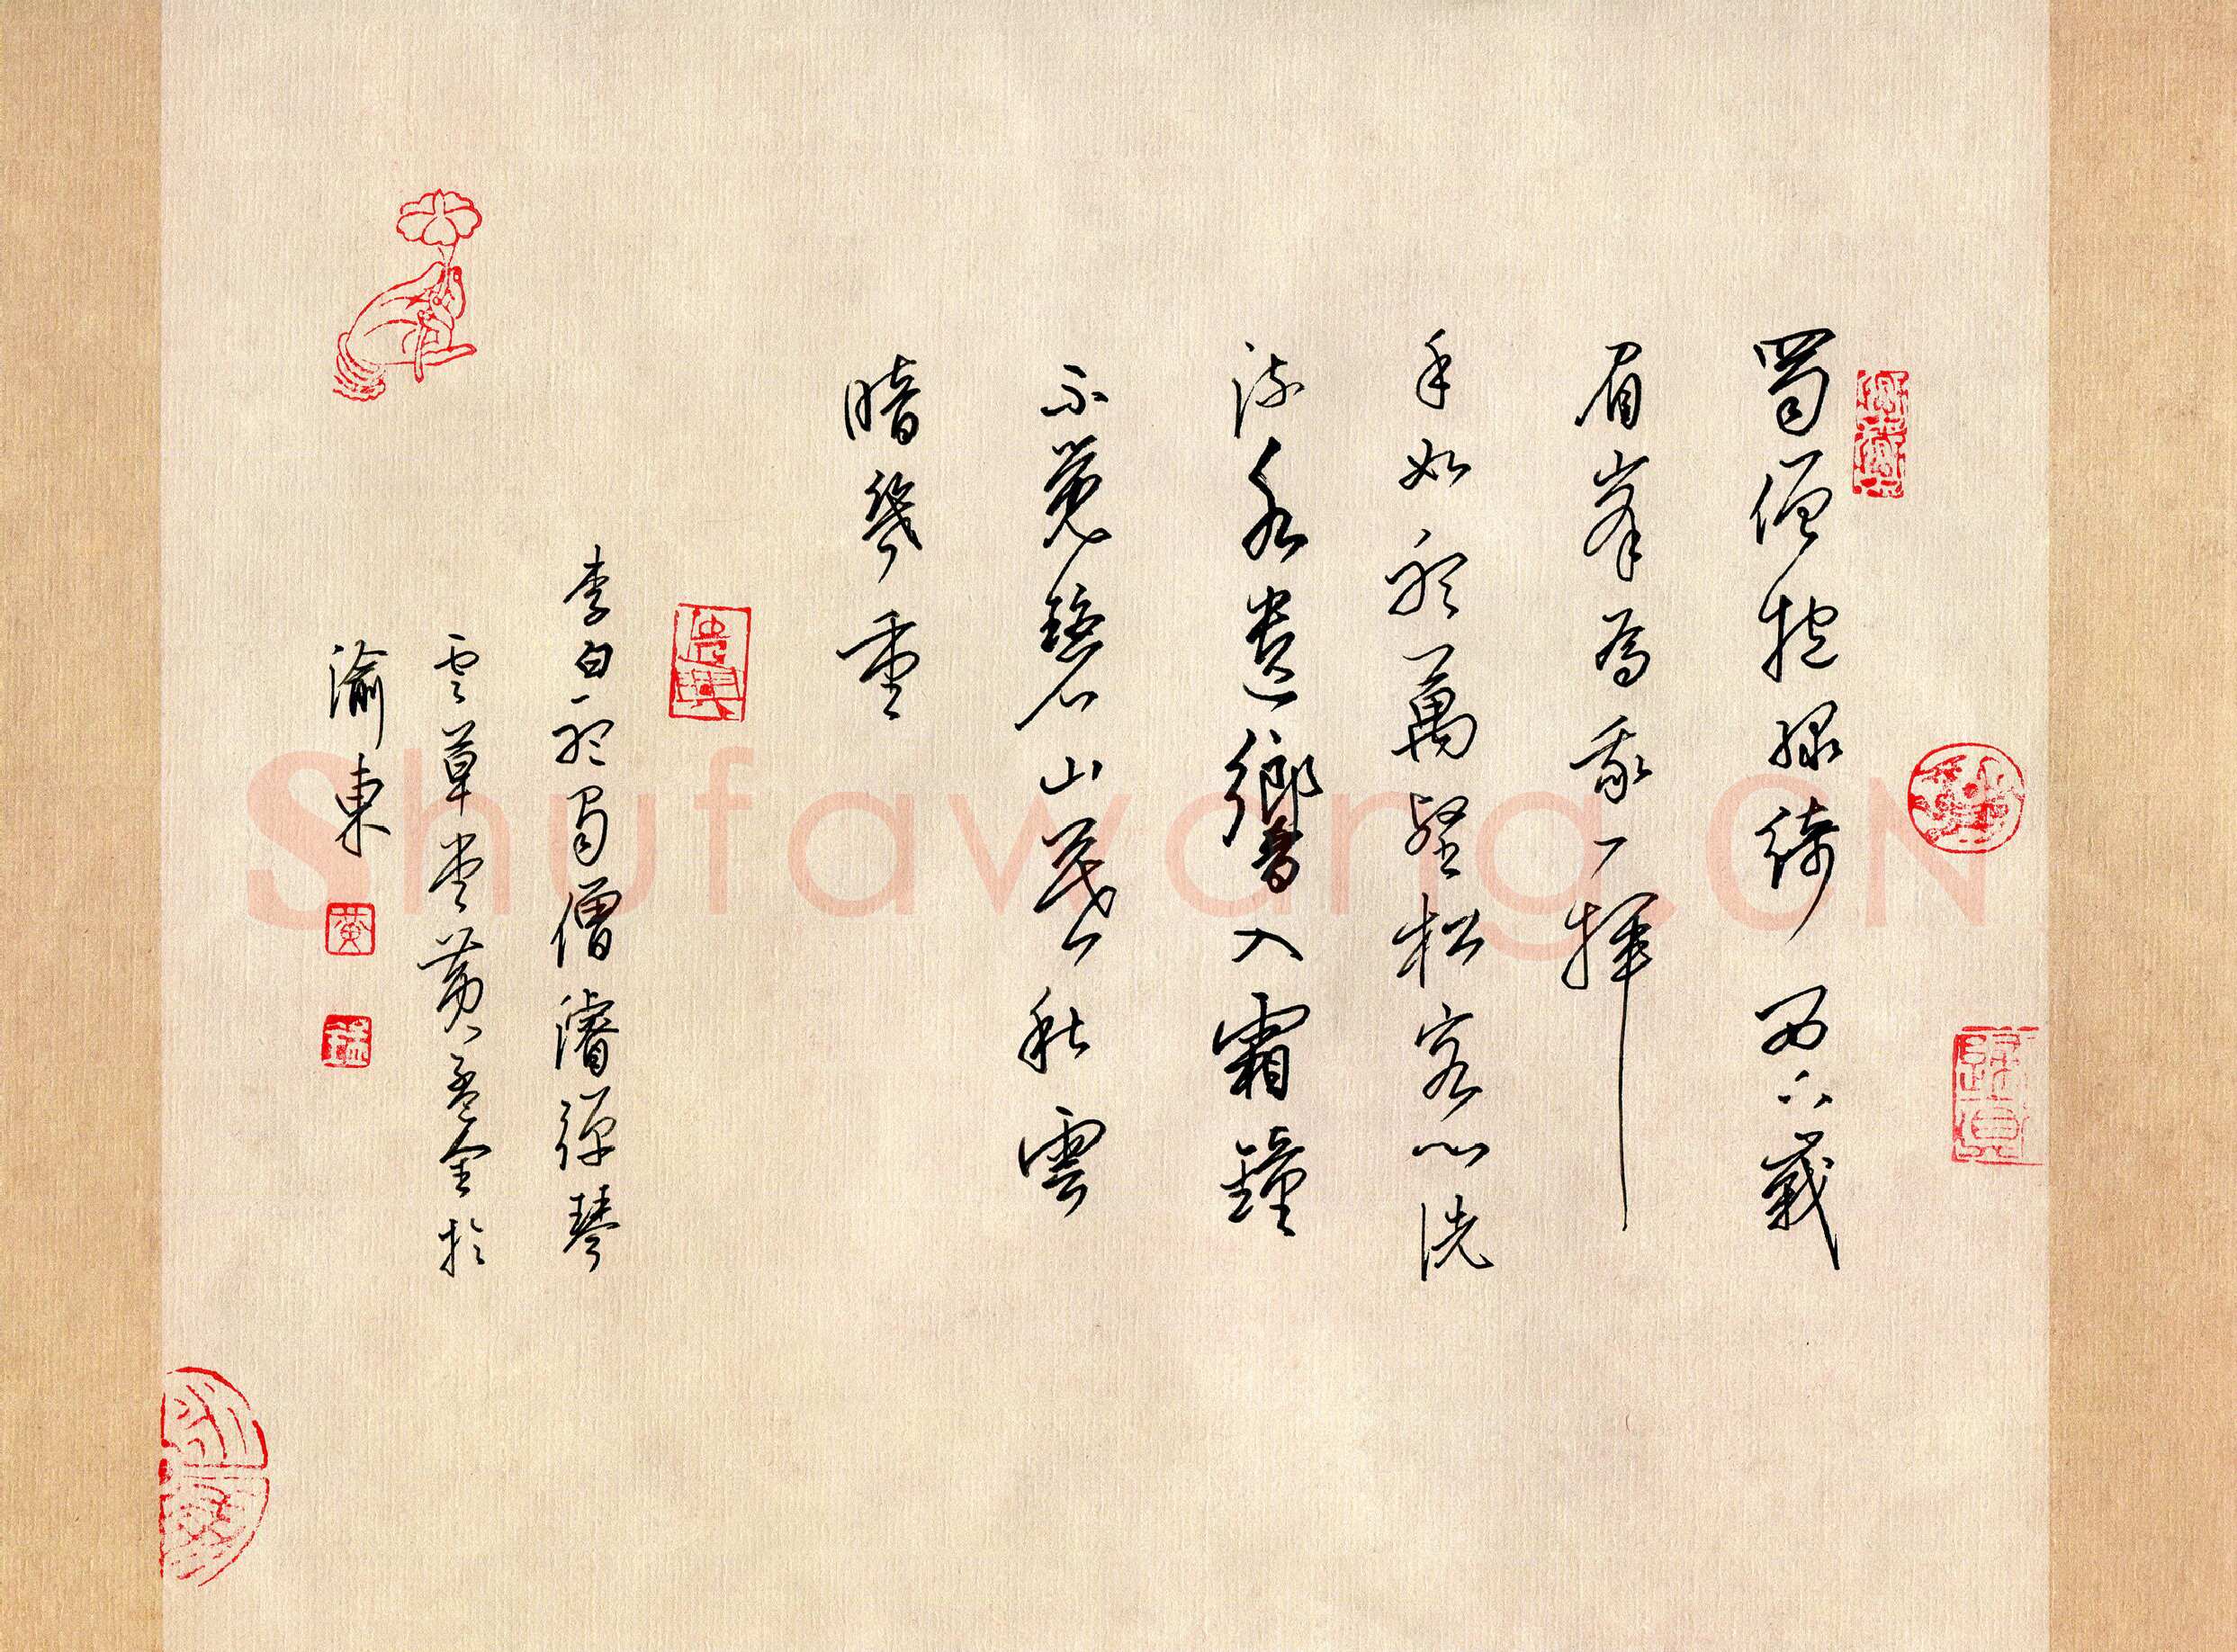 蜀僧抱綠綺西下峩
眉峯為我一揮
手如聽萬壑松客心洗
流水遺響入霜鐘
不覺碧山暮秋雲
暗幾重
李白聽蜀僧濬彈琴
雲草堂黃孟金於
渝東
黄
Shufawang.CN